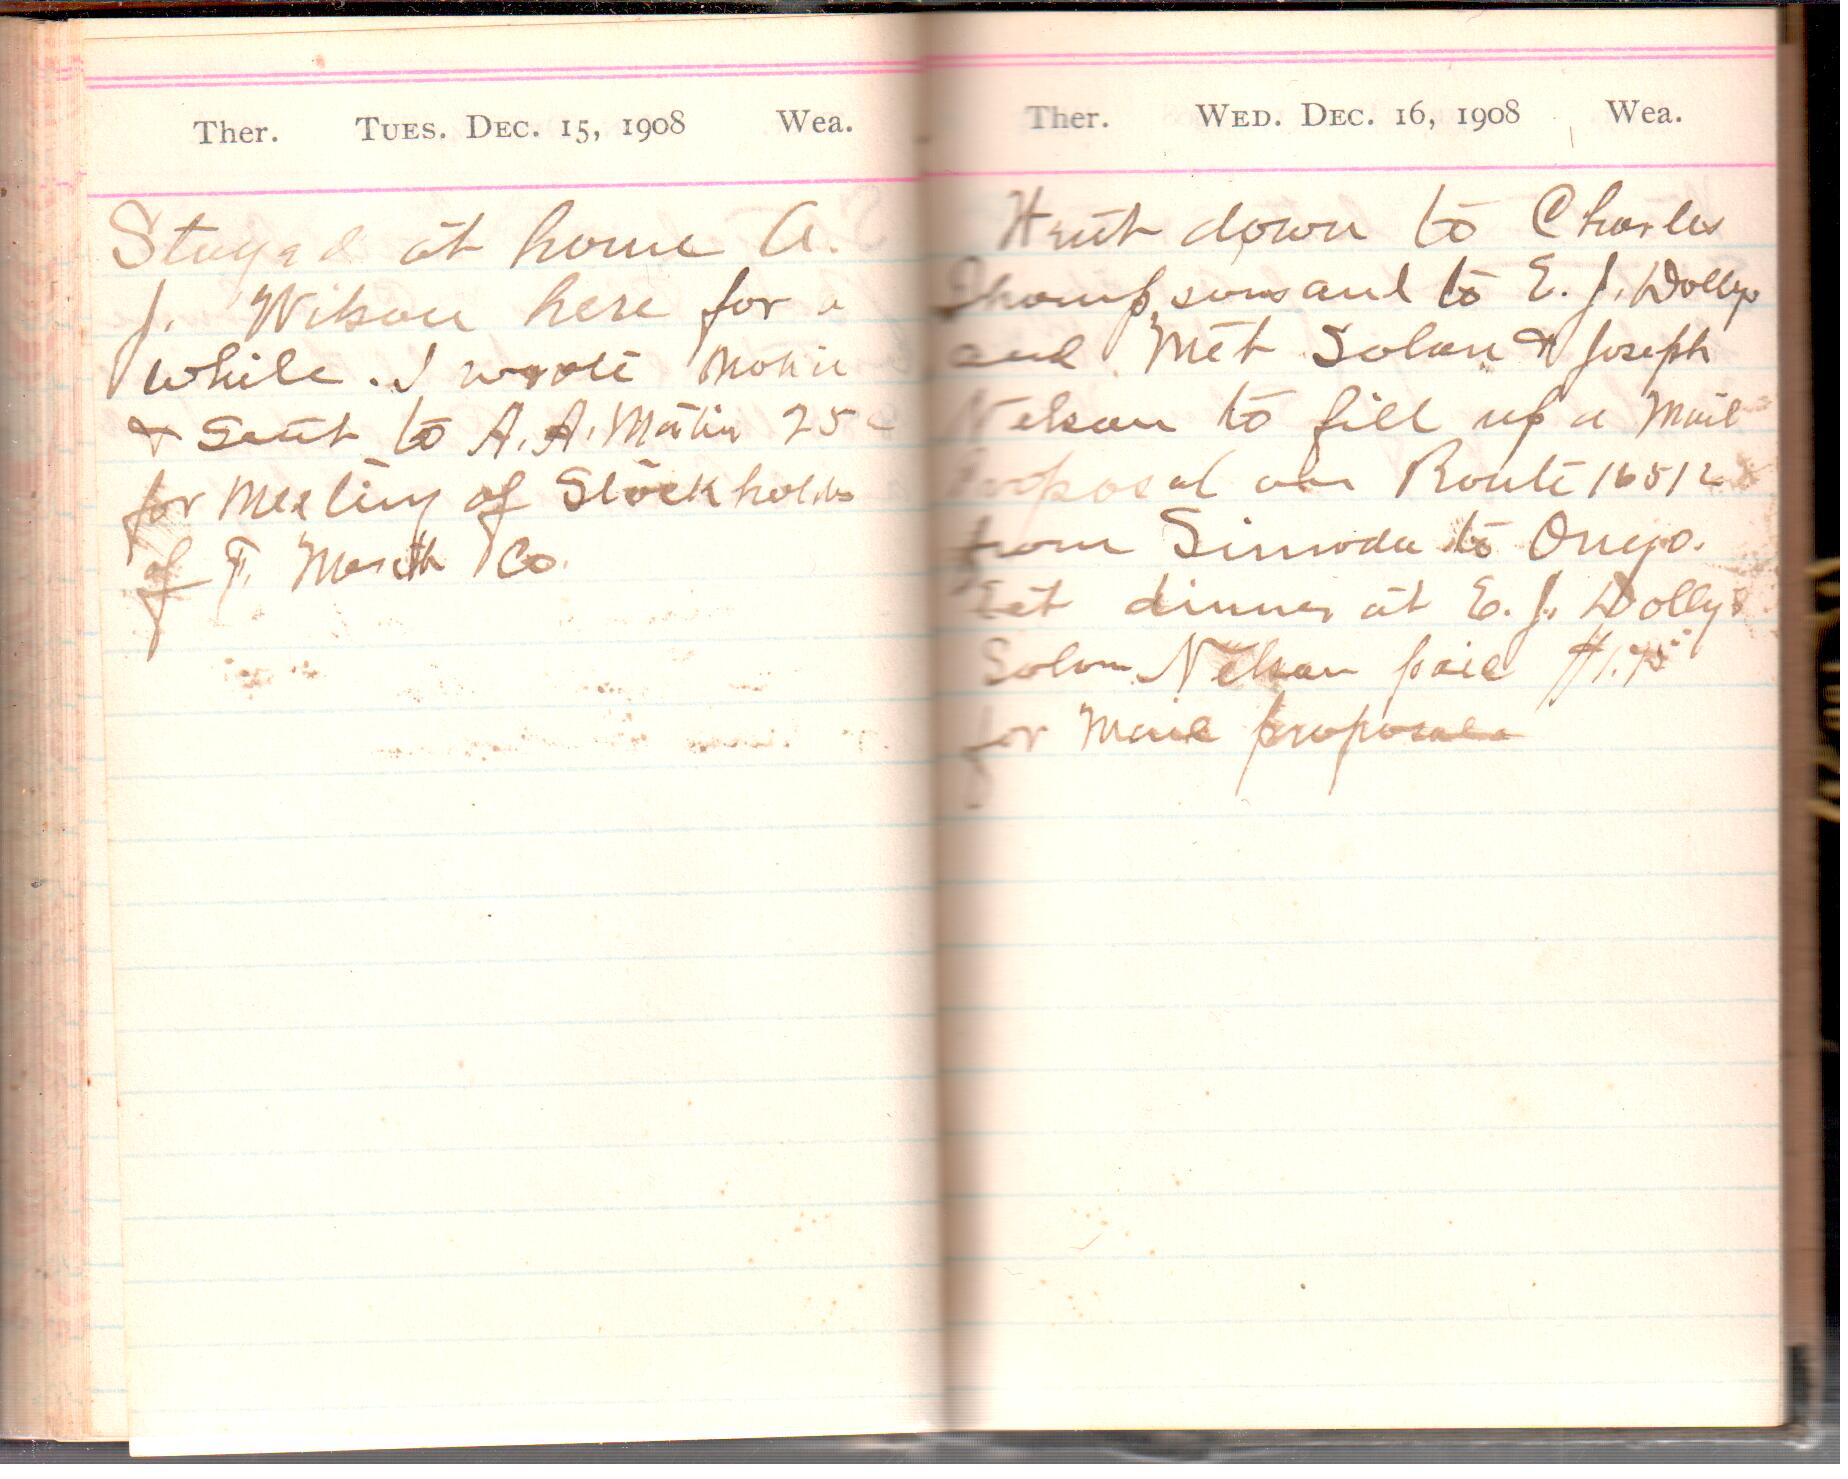 Ther. TUES. DEC. 15, 1908 Wea.
Stayed at home A.
J. Wilson here for a
while. I wrote Notice
& Sent to A. A. Martin 25c
for Meeting of Stockholders
of F. Co.
Ther. WED. DEC. 16, 1908 Wea.
Went down to Charles
Thompsons and to E. J. Dollys
and Met Solon & Joseph
Nelson to fill up a Mail
Proposal on Route 16512
from Simoda to Onego.
Eat dinner at E. J. Dollys
Solon Nelson paid $1.75
for Mail proposal